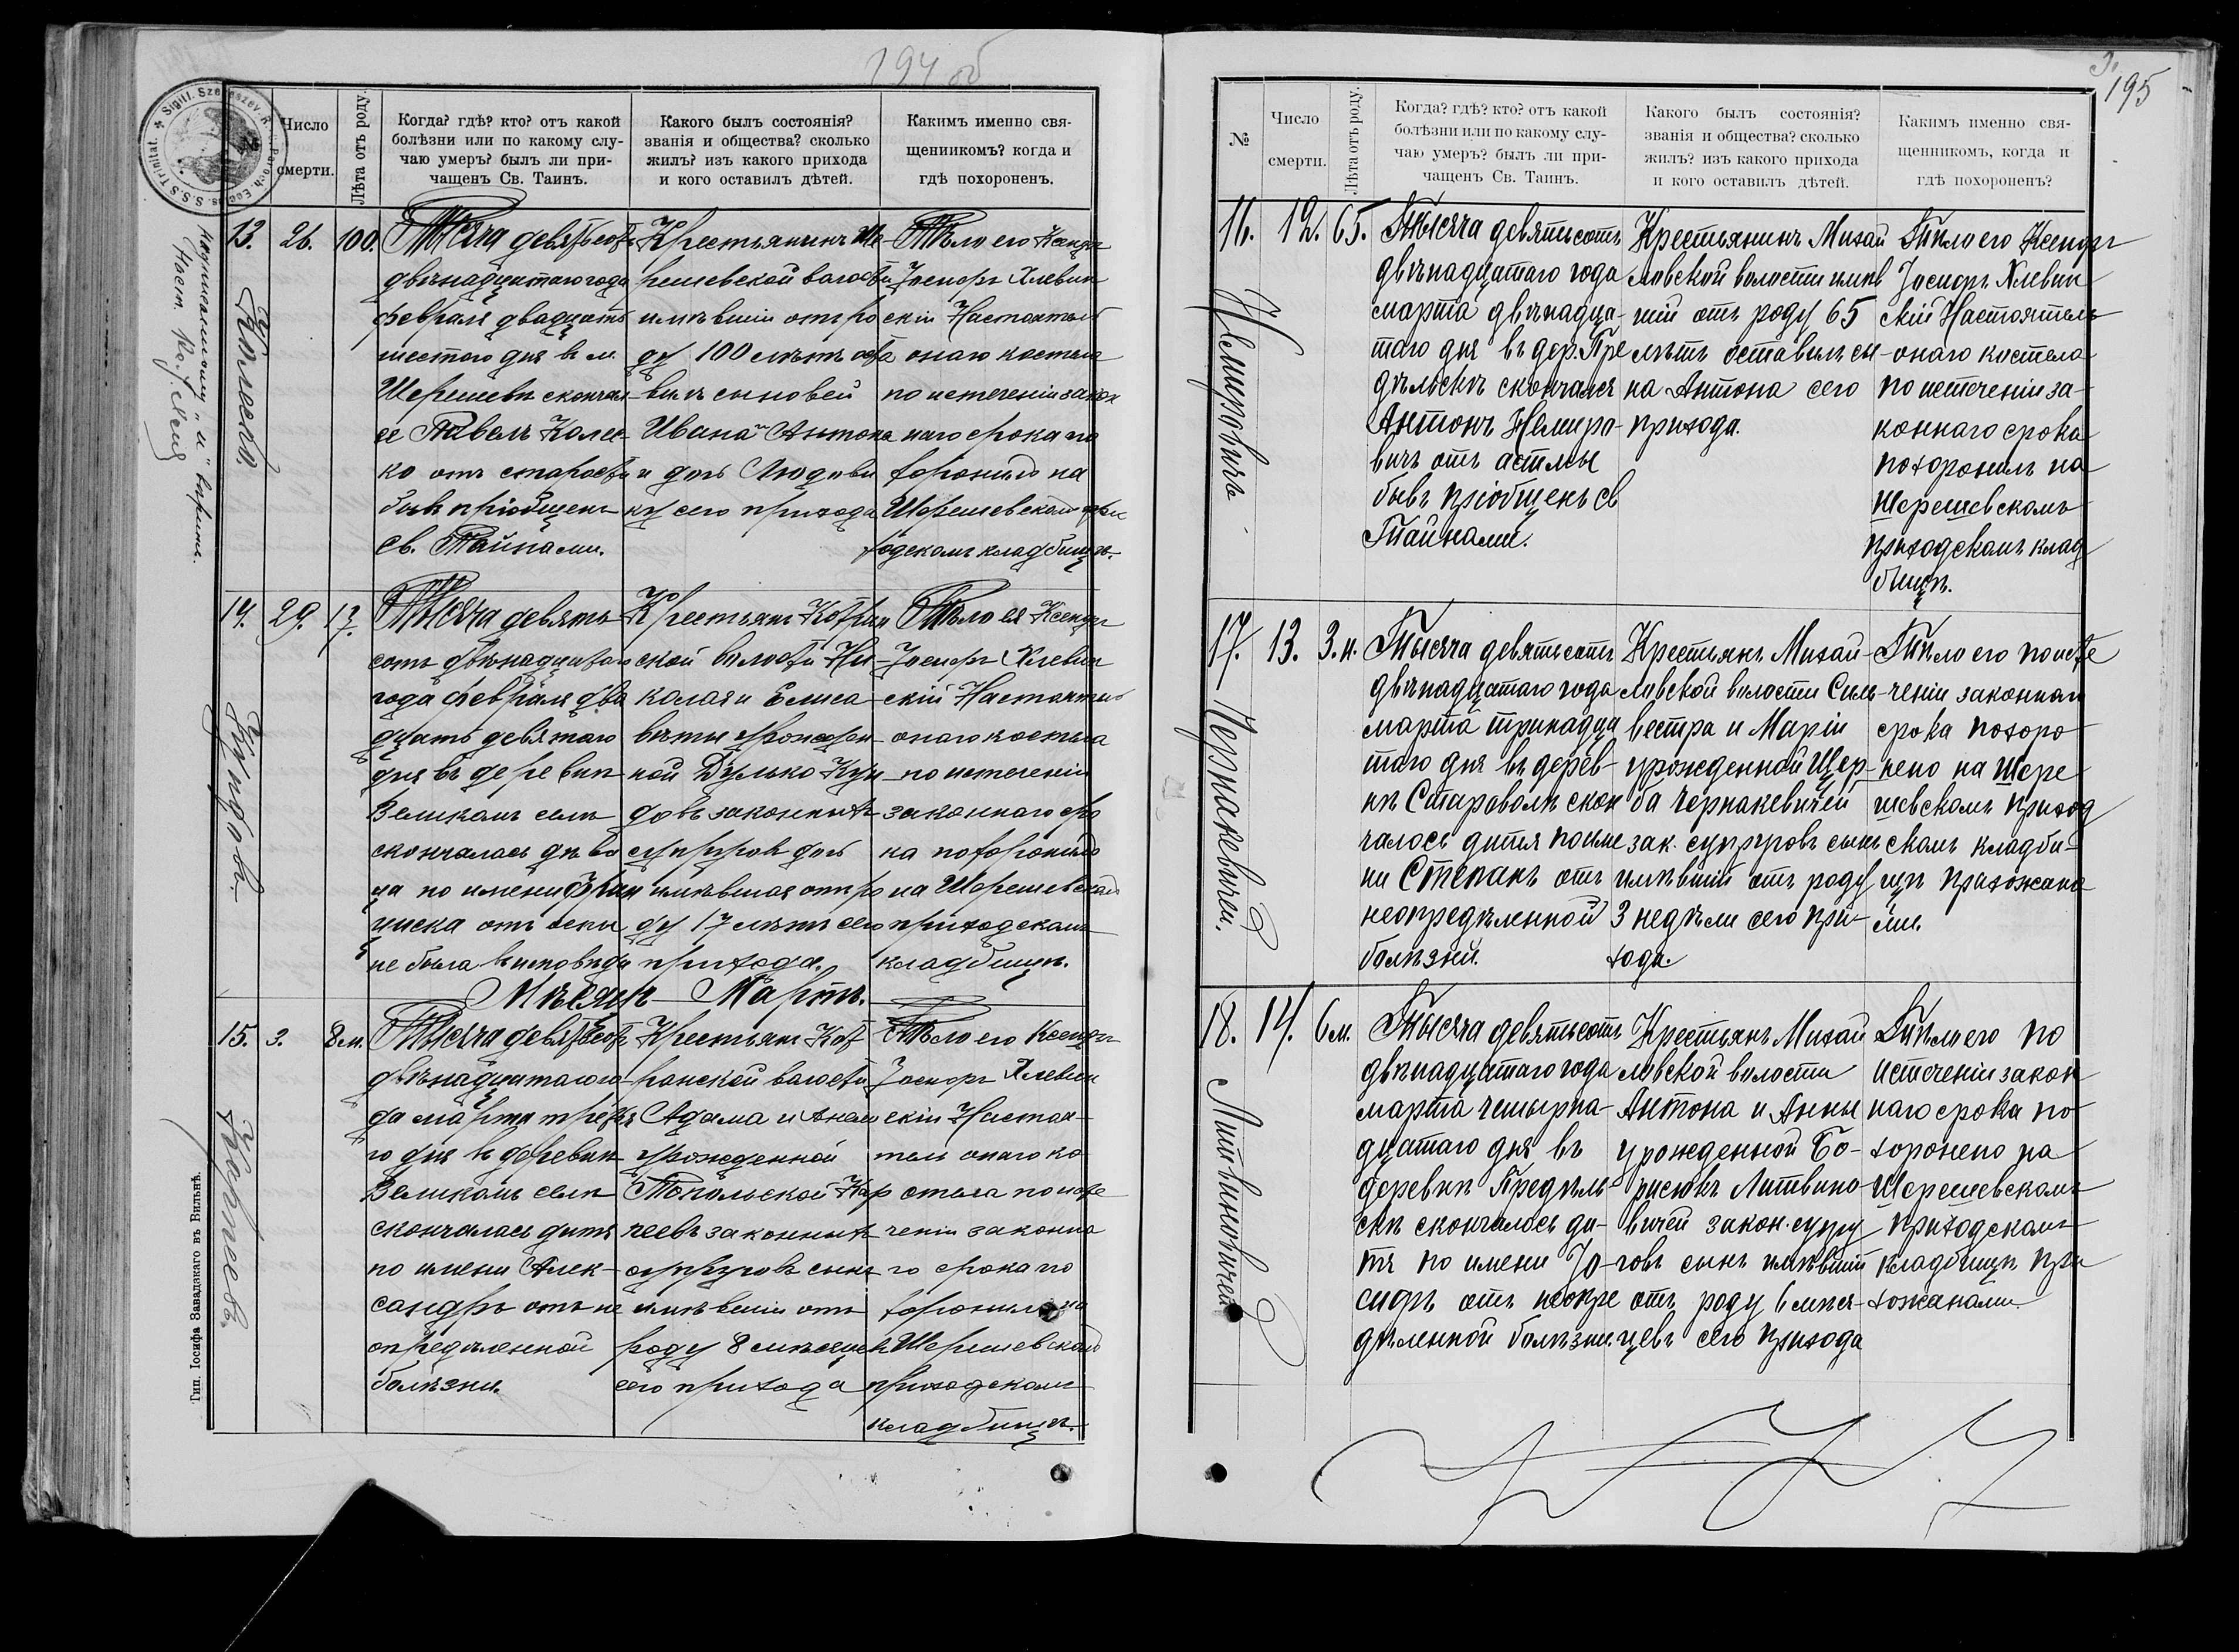 194 об
Sigil. Szereszev. R. Paroch. Eccles. S.S. Trinitat.
Число
смерти.
Лѣта отъ роду.
Когда? гдѣ? кто? отъ какой
болѣзни или по какому слу-
чаю умеръ? былъ ли при-
чащенъ Св. Таинъ.
Какого былъ состоянія?
званія и общества? сколько
жилъ? изъ какого прихода
и кого оставилъ дѣтей.
Какимъ именно свя-
щенникомъ? когда и
гдѣ похороненъ.
13.
26.
100.
Тысяча девятьсотъ
двѣнадцатаго года
февраля двадцать
шестого дня въ м.
Шерешевѣ скончал
ся Павелъ Колес
ко отъ старости
бывъ пріобщенъ
Св. Тайнами.
Крестьянинъ Ше
решевской волости
имѣвшій отъ ро
ду 100 лѣтъ оста
вилъ сыновей
Ивана Антона
и дочь Людови
ку сего прихода
Тѣло его Ксендзъ
Іосифъ Хлевин
скій Настоятель
онаго костела
по истеченіи закон
наго срока по
хоронилъ на
Шерешевскомъ при
ходскомъ кладбищѣ.
Колеско.
14.
29.
17.
Тысяча девять
сотъ двѣнадцатаго
года февраля два
дцать девятаго
дня въ деревнѣ
Великомъ селѣ
скончалась дѣви
ца по имени Фран
циска отъ оспы
не была въ исповѣди
Крестьянъ Котран
ской волости Ни
колая и Елиса
веты урожден
ной Дулько Кун
довъ законныхъ
супруговъ дочь
имѣвшая отъ ро
ду 17 лѣтъ сего
прихода.
Тѣло ея Ксендзъ
Іосифъ Хлевин
скій Настоятель
онаго костела
по истеченіи
законнаго сро
ка похоронилъ
на Шерешевскомъ
приходскомъ
кладбищѣ.
Кундовъ.
Мѣсяцъ Мартъ.
15.
3.
8 м.
Тысяча девятьсотъ
двѣнадцатаго го
да марта третья
го дня въ деревнѣ
Великомъ селѣ
скончалась дитя
по имени Алек-
сандръ отъ не
опредѣленной
болѣзни.
Крестьянъ Кот
ранской волости
Адама и Анели
урожденной
Токольской Кар
неевъ законныхъ
супруговъ сынъ
имѣвшій отъ
роду 8 мѣсяцевъ
сего прихода
Тѣло его Ксендзъ
Іосифъ Хлевин
скій Настоя-
тель онаго ко
стела по исте
ченіи законна
го срока по
хоронилъ на
Шерешевскомъ
приходскомъ
кладбищѣ.
Карнеевъ.
Тип. Іосифа Завадзкаго въ Вильнѣ.
195
№
Число
смерти.
Лѣта отъ роду.
Когда? гдѣ? кто? отъ какой
болѣзни или по какому слу-
чаю умеръ? былъ ли при-
чащенъ Св. Таинъ.
Какого былъ состоянія?
званія и общества? сколько
жилъ? изъ какого прихода
и кого оставилъ дѣтей.
Какимъ именно свя-
щенникомъ, когда и
гдѣ похороненъ?
16.
12.
65.
Тысяча девятьсотъ
двѣнадцатаго года
марта двѣнадца-
таго дня въ дер. Пре
дѣльскѣ скончался
Антонъ Немиро-
вичъ отъ астмы
бывъ пріобщенъ св
Тайнами.
Крестьянинъ Михай
ловской волости имѣв
шій отъ роду 65
лѣтъ оставилъ сы-
на Антона сего
прихода.
Тѣло его Ксендзъ
Іосифъ Хлевин
скій Настоятель
онаго костела
по истеченіи за-
коннаго срока
похоронилъ на
Шерешевскомъ
приходскомъ клад
бищѣ.
Немировичъ
17.
13.
3. н.
Тысяча девятьсотъ
двѣнадцатаго года
марта тринадца
таго дня въ дерев-
нѣ Староволѣ скон
чалось дитя по име
ни Степанъ отъ
неопредѣленной
болѣзни.
Крестьянъ Михай-
ловской волости Силь
вестра и Маріи
урожденной Щер-
ба Чернакевичей
зак. супруговъ сынъ
имѣвшій отъ роду
3 недѣли сего при-
хода.
Тѣло его по исте
ченіи законнаго
срока похоро
нено на Шере
шевскомъ приход
скомъ кладби-
щѣ прихожана
ми.
Чернакевичей.
18.
14.
6 м.
Тысяча девятьсотъ
двѣнадцатаго года
марта четырна-
дцатаго дня въ
деревнѣ Предѣль-
скѣ скончалось ди-
тя по имени Іо-
сифъ отъ неопре
дѣленной болѣзни.
Крестьянъ Михай
ловской волости
Антона и Анны
урожденной Бо-
рисюкъ Литвино-
вичей закон. супру
говъ сынъ имѣвшій
отъ роду 6 мѣся-
цевъ сего прихода
Тѣло его по
истеченіи закон
наго срока по
хоронено на
Шерешевскомъ
приходскомъ
кладбищѣ при
хожанами.
Литвиновичей